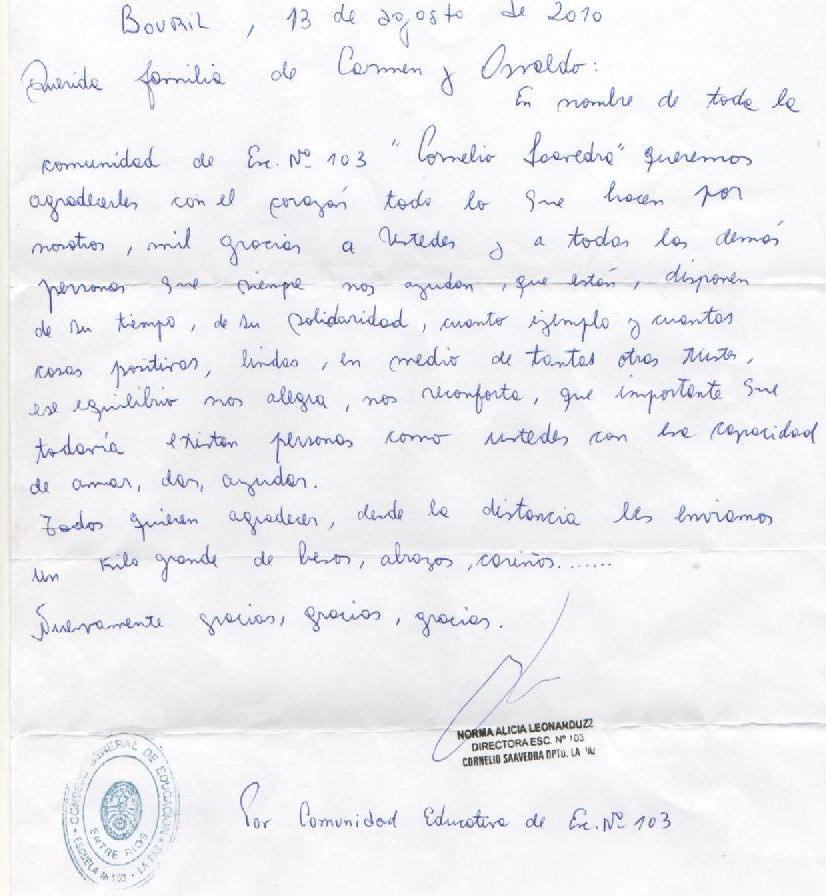 BOVRIL, 13 de agosto de 2010
Querida familia de Carmen y Osvaldo:
En nombre de toda la
comunidad de Esc. Nº 103 "Cornelio Saavedra" queremos
agradecerles con el corazón todo lo que hacen por
nosotros, mil gracias a Ustedes y a todas las demás
personas que siempre nos ayudan, que están, disponen
de su tiempo, de su solidaridad, cuanto ejemplo y cuantas
cosas positivas, lindas, en medio de tantas otras tristes,
ese equilibrio nos alegra, nos reconforta, que importante que
todavía existan personas como ustedes con esa capacidad
de amar, dar, ayudar.
Todos quieren agradecer, desde la distancia les enviamos
un kilo grande de besos, abrazos, cariños.......
Nuevamente gracias, gracias, gracias.
NORMA ALICIA LEONARDUZZ
DIRECTORA ESC. Nº 103
CORNELIO SAAVEDRA DPTO. LA PAZ
CONSEJO GENERAL DE EDUCACION
ENTRE RIOS
ESCUELA Nº 103 - LA PAZ
Por Comunidad Educativa de Esc. Nº 103